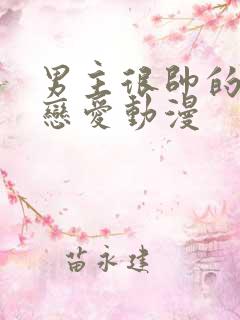 男主很帥的
戀愛動漫
苗永建